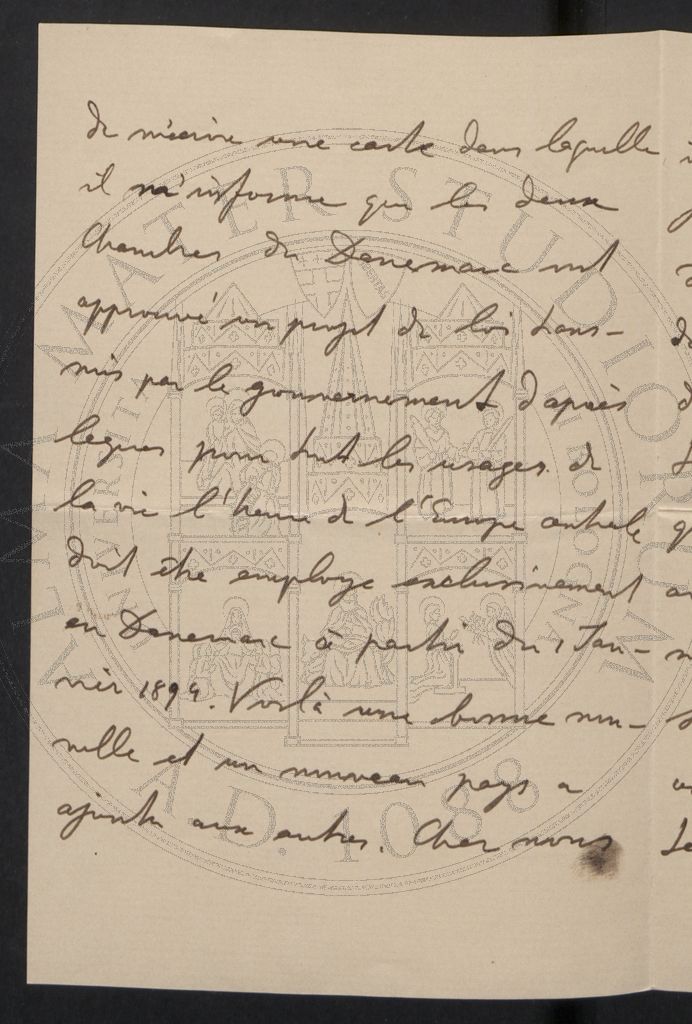 de m'écrire une carte dans laquelle
il m'informe que les deux
Chambres du Danemarc ont
approuvé un projet de lois trans-
mis par le gouvernement d'après
lequel pour tout les usages de
la vie l'heure de l'Europe centrale
doit être employe exclusivement
en Danemarc à partir du 1 Jan-
vier 1894. Voilà une bonne nou-
velle et un nouveau pays a
ajouter aux autres. Chez nous
ALMA MATER STUDIORUM
A.D. 1088